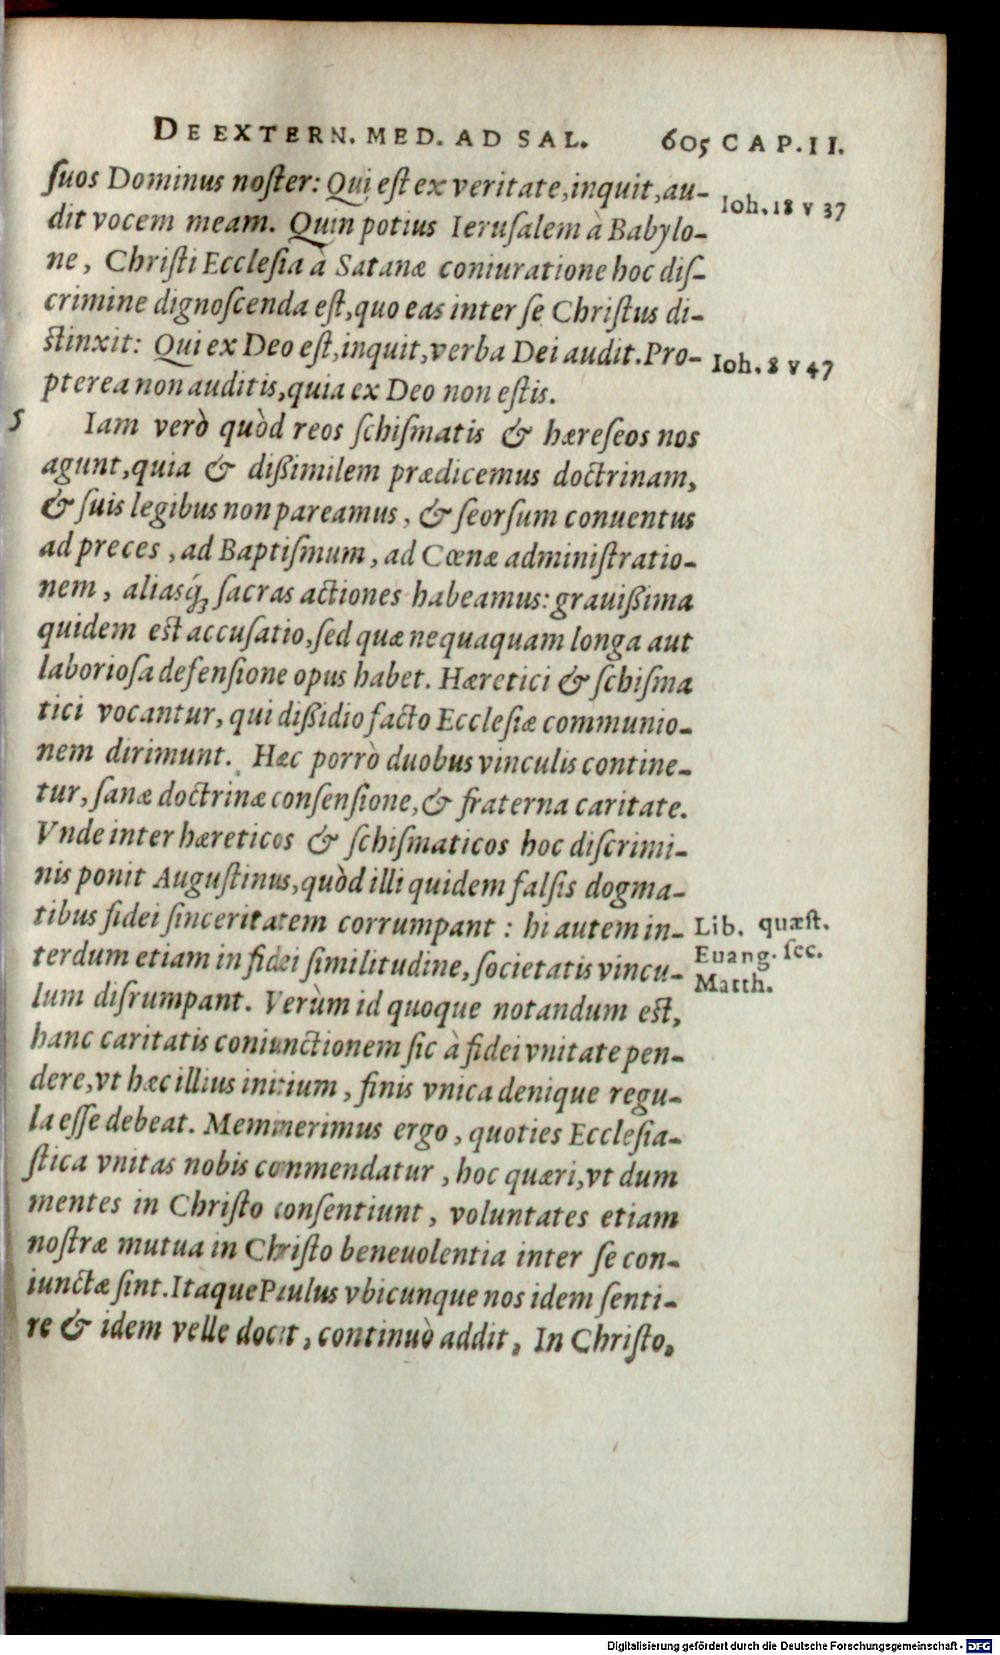 DE EXTERN. MED. AD SAL. 605 CAP. II.
ſuos Dominus noſter: Qui eſt ex veritate, inquit, au-
Ioh. 18 v 37
dit vocem meam. Quin potius Ieruſalem à Babylo-
ne, Chriſti Eccleſia à Satanæ coniuratione hoc diſ-
crimine dignoſcenda eſt, quo eas inter ſe Chriſtus di-
ſtinxit: Qui ex Deo eſt, inquit, verba Dei audit. Pro-
Ioh. 8 v 47
pterea non auditis, quia ex Deo non eſtis.
5 Iam verò quòd reos ſchiſmatis & hæreſeos nos
agunt, quia & dißimilem prædicemus doctrinam,
& ſuis legibus non pareamus, & ſeorſum conuentus
ad preces, ad Baptiſmum, ad Cœnæ adminiſtratio-
nem, aliasq́ꝫ ſacras actiones habeamus: grauißima
quidem eſt accuſatio, ſed quæ nequaquam longa aut
laborioſa defenſione opus habet. Hæretici & ſchiſma
tici vocantur, qui dißidio facto Eccleſiæ communio-
nem dirimunt. Hæc porrò duobus vinculis contine-
tur, ſanæ doctrinæ conſenſione, & fraterna caritate.
Vnde inter hæreticos & ſchiſmaticos hoc diſcrimi-
nis ponit Auguſtinus, quòd illi quidem falſis dogma-
tibus fidei ſinceritatem corrumpant : hi autem in-
Lib. quæſt.
Euang. ſec.
Matth.
terdum etiam in fidei ſimilitudine, ſocietatis vincu-
lum diſrumpant. Verùm id quoque notandum eſt,
hanc caritatis coniunctionem ſic à fidei vnitate pen-
dere, vt hæc illius initium, finis vnica denique regu-
la eſſe debeat. Memmerimus ergo, quoties Eccleſia-
ſtica vnitas nobis commendatur, hoc quæri, vt dum
mentes in Chriſto conſentiunt, voluntates etiam
noſtræ mutua in Chriſto beneuolentia inter ſe con-
iunctæ ſint. Itaque Paulus vbicunque nos idem ſenti-
re & idem velle docet, continuò addit, In Chriſto,
Digitalisierung gefördert durch die Deutsche Forschungsgemeinschaft - DFG